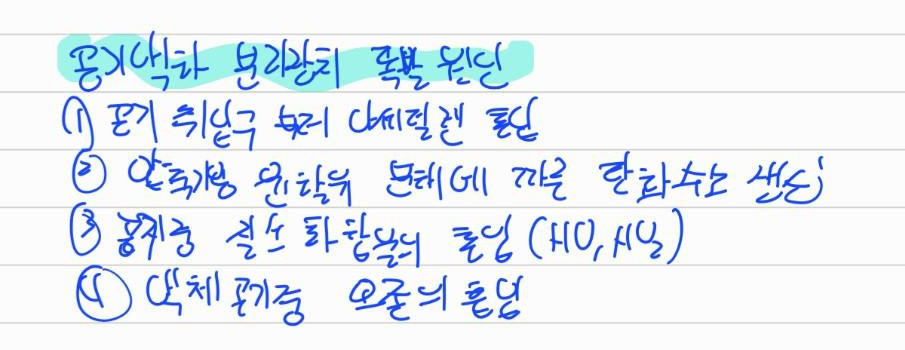 공기액화 분리장치 폭발 원인
① 공기 취입구 부터 아세틸렌 혼입
② 압축기용 윤활유 분해에 따른 탄화수소 생성
③ 공기중 질소 화합물의 혼입 (NO, NO₂)
④ 액체 공기중 오존의 혼입